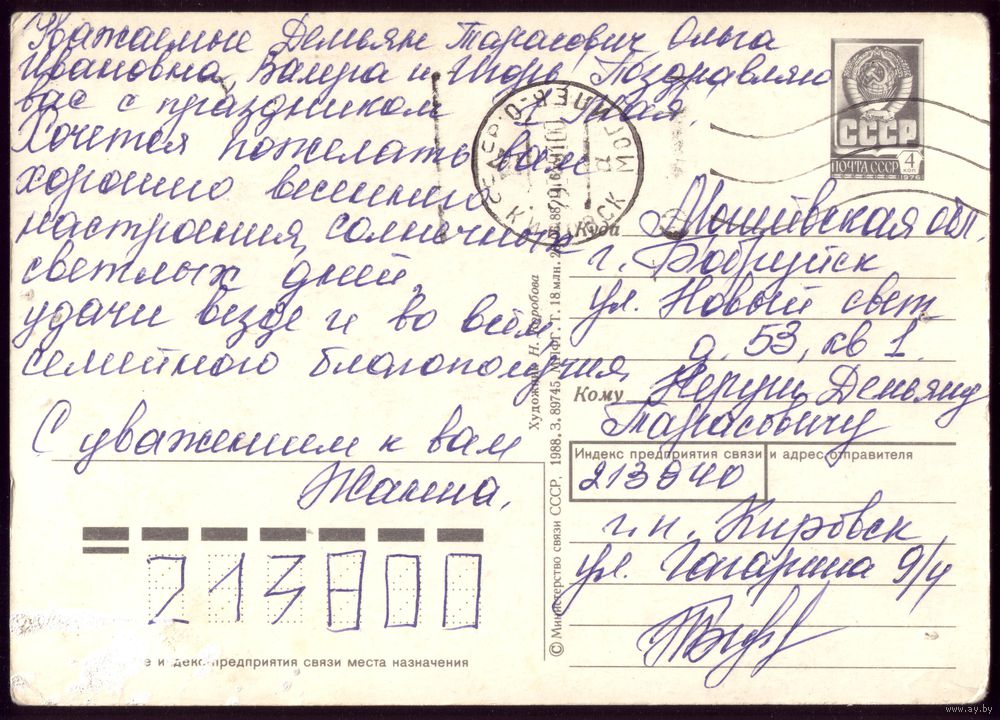 Уважаемые Демьян Тарасович, Ольга
Ивановна, Валера и Игорь! Поздравляю
вас с праздником 1 Мая.
Хочется пожелать вам
хорошего весеннего
настроения, солнечных
светлых дней,
удачи везде и во всём,
семейного благополучия
С уважением к вам
Жанна.
213800
е и декс предприятия связи места назначения
© Министерство связи СССР, 1988. З. 89745. МПФГ. Г. 18 млн.
Художник Н. Коробова
СССР
ПОЧТА СССР
4
КОП
1976
КИРОВСК
Куда
Могилёвская обл.
г. Бобруйск
ул. Новый свет
д. 53, кв 1.
Кому
Демьяну
Тарасовичу
Индекс предприятия связи и адрес отправителя
213940
г.п. Кировск
ул. Гагарина 9/4
www.ay.by